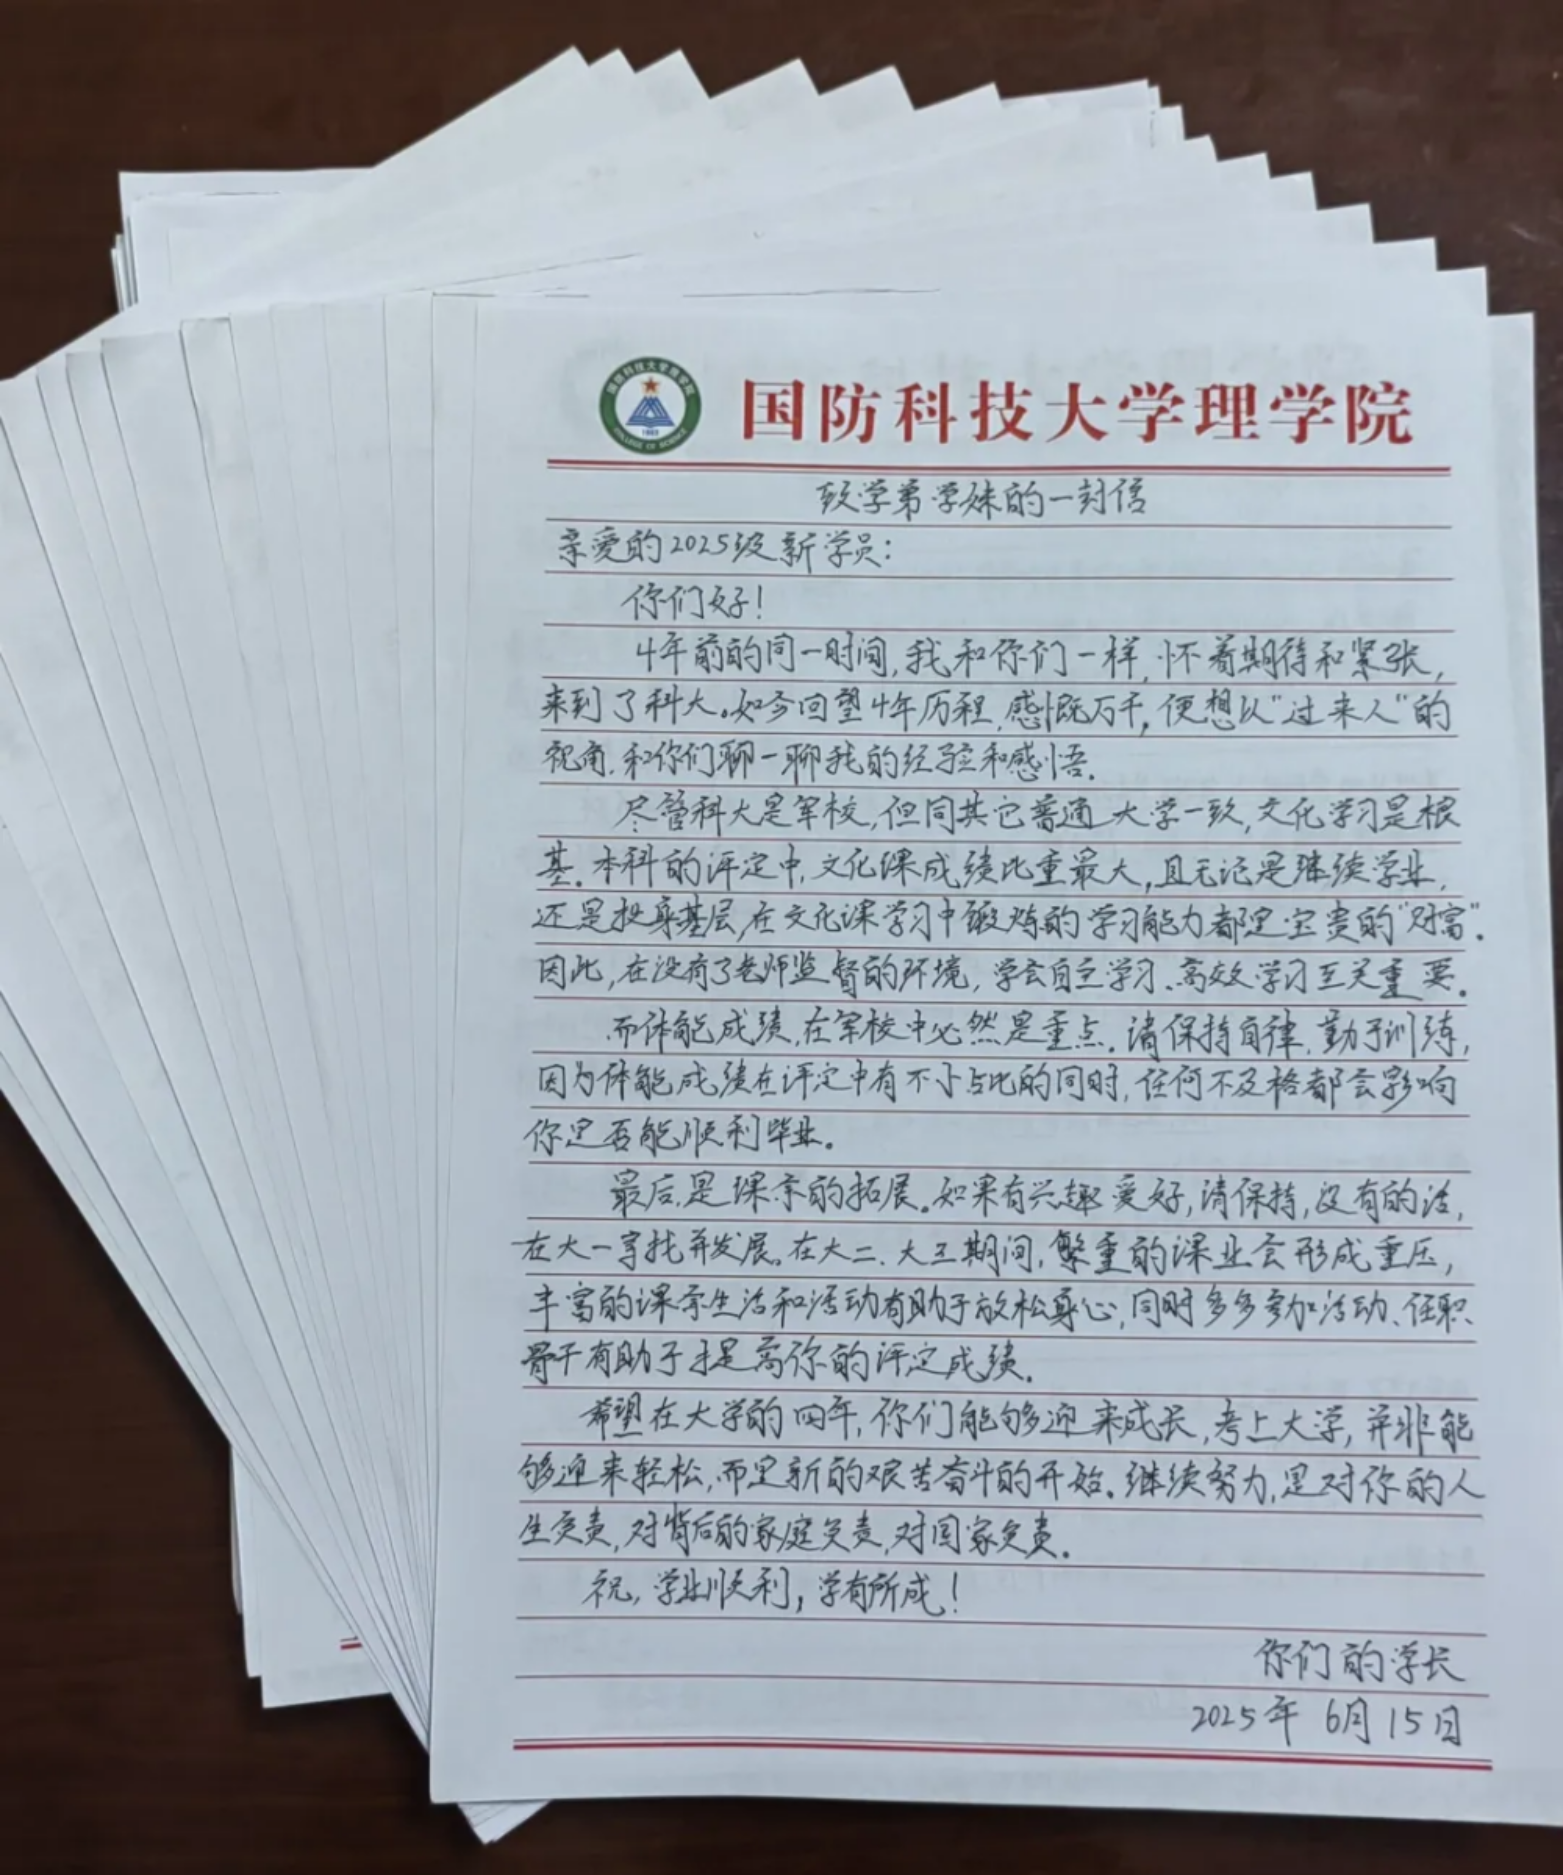 国防科技大学理学院
COLLEGE OF SCIENCE
国防科技大学理学院
致学弟学妹的一封信
亲爱的2025级新学员：
你们好！
4年前的同一时间，我和你们一样，怀着期待和紧张，
来到了科大。如今回望4年历程，感慨万千，便想以“过来人”的
视角，和你们聊一聊我的经验和感悟。
尽管科大是军校，但同其它普通大学一致，文化学习是根
基。本科的评定中，文化课成绩比重最大，且无论是继续学业，
还是投身基层，在文化课学习中锻炼的学习能力都是宝贵的“财富”。
因此，在没有了老师监督的环境，学会自主学习、高效学习至关重要。
而体能成绩，在军校中必然是重点。请保持自律，勤于训练，
因为体能成绩在评定中有不小占比的同时，任何不及格都会影响
你是否能顺利毕业。
最后，是课余的拓展。如果有兴趣爱好，请保持，没有的话，
在大一寻找并发展。在大二、大三期间，繁重的课业会形成重压，
丰富的课余生活和活动有助于放松身心，同时多多参加活动、任职
骨干有助于提高你的评定成绩。
希望在大学的四年，你们能够迎来成长，考上大学，并非能
够迎来轻松，而是新的艰苦奋斗的开始。继续努力，是对你的人
生负责，对背后的家庭负责，对国家负责。
祝，学业顺利，学有所成！
你们的学长
2025年6月15日